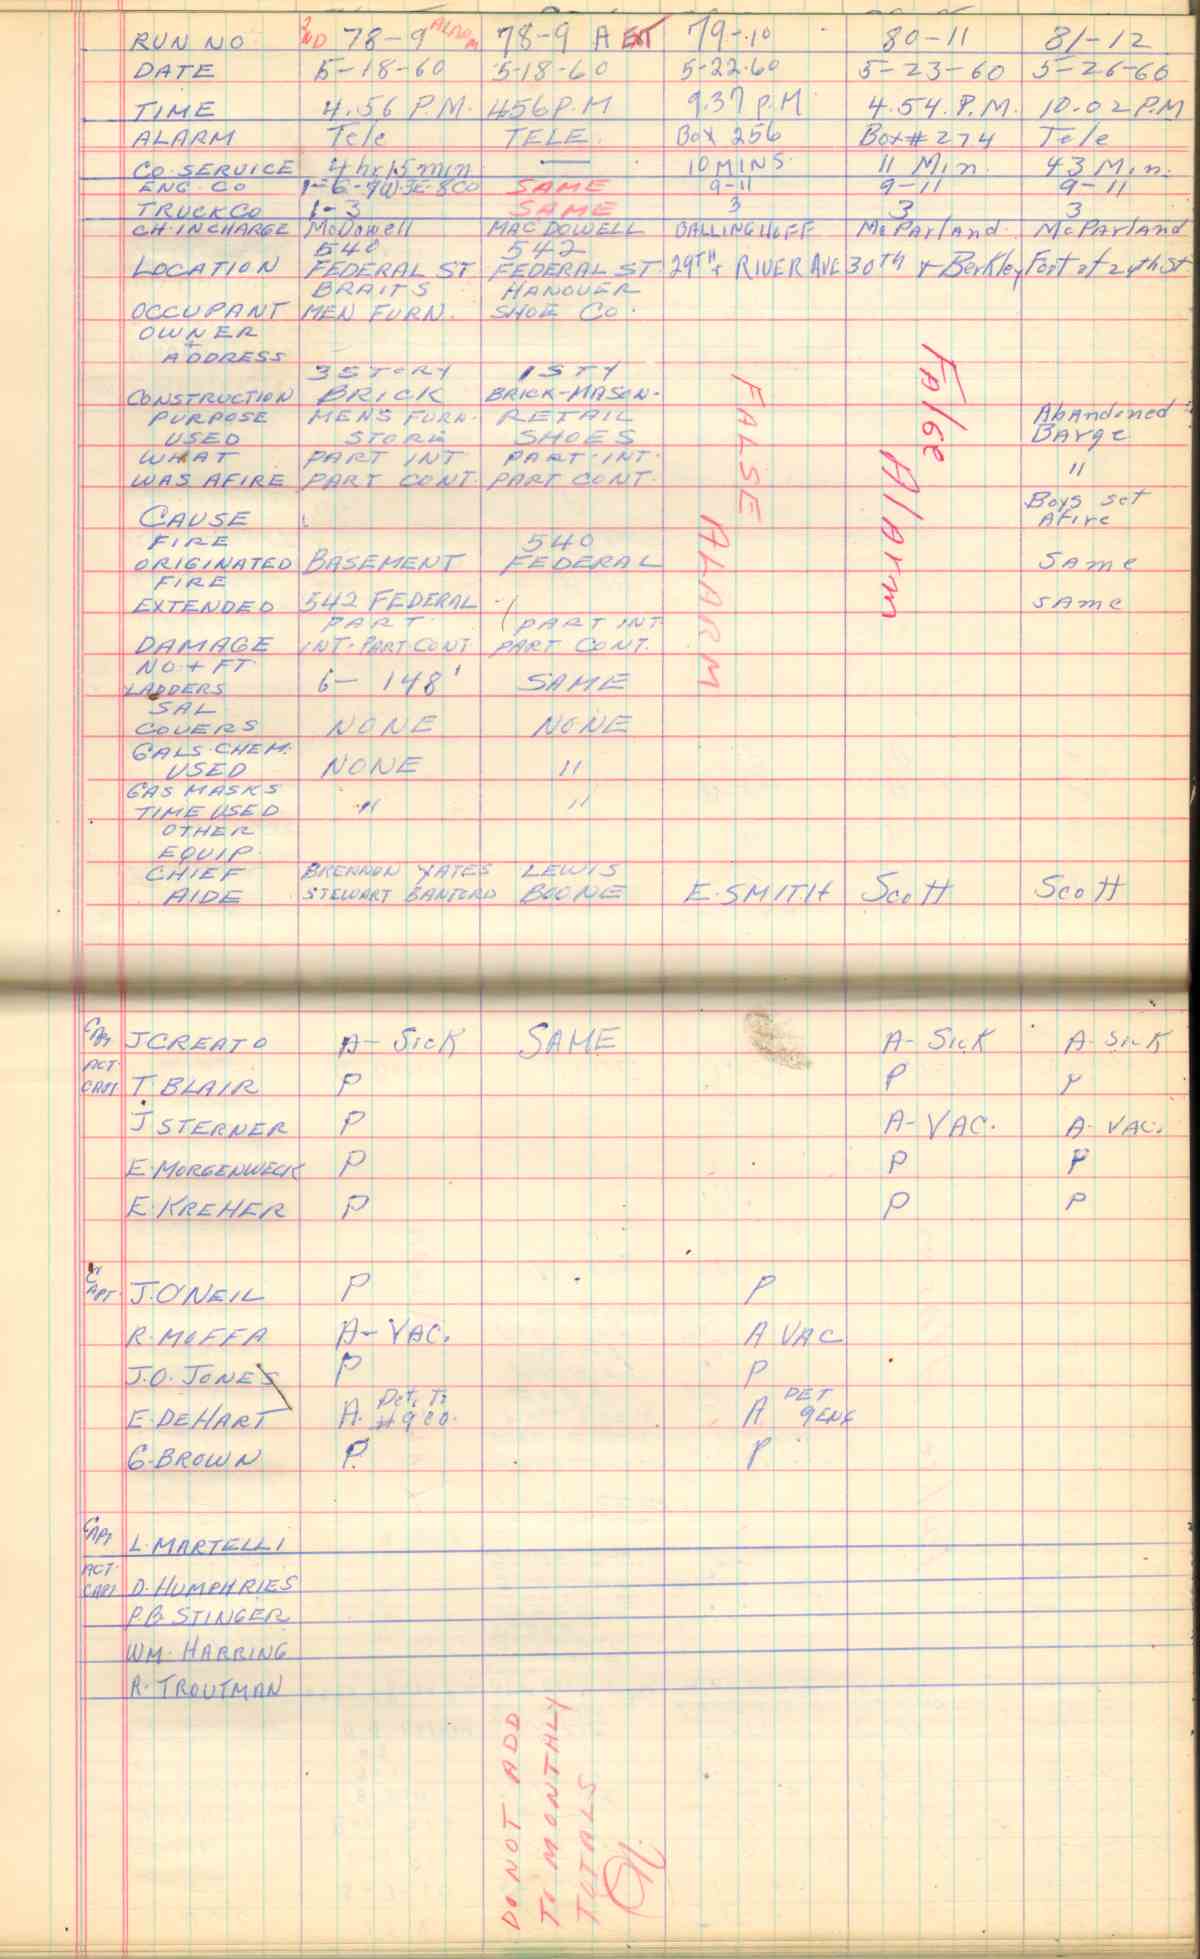 RUN NO 2ND 78-9 ALARM 78-9 A EXT 79-10 80-11 81-12
DATE 5-18-60 5-18-60 5-22-60 5-23-60 5-26-60
TIME 4.56 P.M. 456 P.M 9.37 P.M 4.54 P.M. 10.02 P.M
ALARM Tele TELE. Box 256 Box #274 Tele
CO. SERVICE 4 hr 15 min — 10 MINS. 11 Min. 43 Min.
ENG. CO SAME 9-11 9-11 9-11
TRUCK CO 1-3 SAME 3 3 3
CH. IN CHARGE McDowell MACDOWELL BALLINGHOFF McParland McParland
540 542
LOCATION FEDERAL ST FEDERAL ST. 29TH + RIVER AVE 30th + Berkley Foot of 24th St.
BRAITS HANOVER
OCCUPANT MEN FURN. SHOE CO.
OWNER
+
ADDRESS
3 STORY 1 STY
CONSTRUCTION BRICK BRICK-MASON.
PURPOSE MENS FURN. RETAIL Abandoned
USED STORE SHOES Barge
WHAT PART INT PART-INT.
WAS AFIRE PART CONT. PART CONT. "
Boys set
CAUSE Afire
FIRE 540
ORIGINATED BASEMENT FEDERAL Same
FIRE
EXTENDED 542 FEDERAL same
PART PART INT
DAMAGE INT-PART CONT PART CONT.
NO + FT
LADDERS 6- 148' SAME
SAL
COVERS NONE NONE
GALS. CHEM.
USED NONE "
GAS MASKS
TIME USED " "
OTHER
EQUIP.
CHIEF BRENNON YATES LEWIS
AIDE STEWART BANFORD BOONE E. SMITH Scott Scott
FALSE ALARM
False Alarm
CAPT J CREATO A- SICK SAME A- SICK A- SICK
ACT.
CAPT T. BLAIR P P P
J STERNER P A- VAC. A- VAC.
E. MORGENWECK P P P
E. KREHER P P P
CAPT. J. O'NEIL P P
R. MOFFA A- VAC. A VAC
J. O. JONES P P
E. DEHART A. Det. To #9 CO. A DET 9 ENG
G. BROWN P P
CAPT L. MARTELLI
ACT.
CAPT D. HUMPHRIES
P.B. STINGER
WM. HARRING
R. TROUTMAN
DO NOT ADD
TO MONTHLY
TOTALS